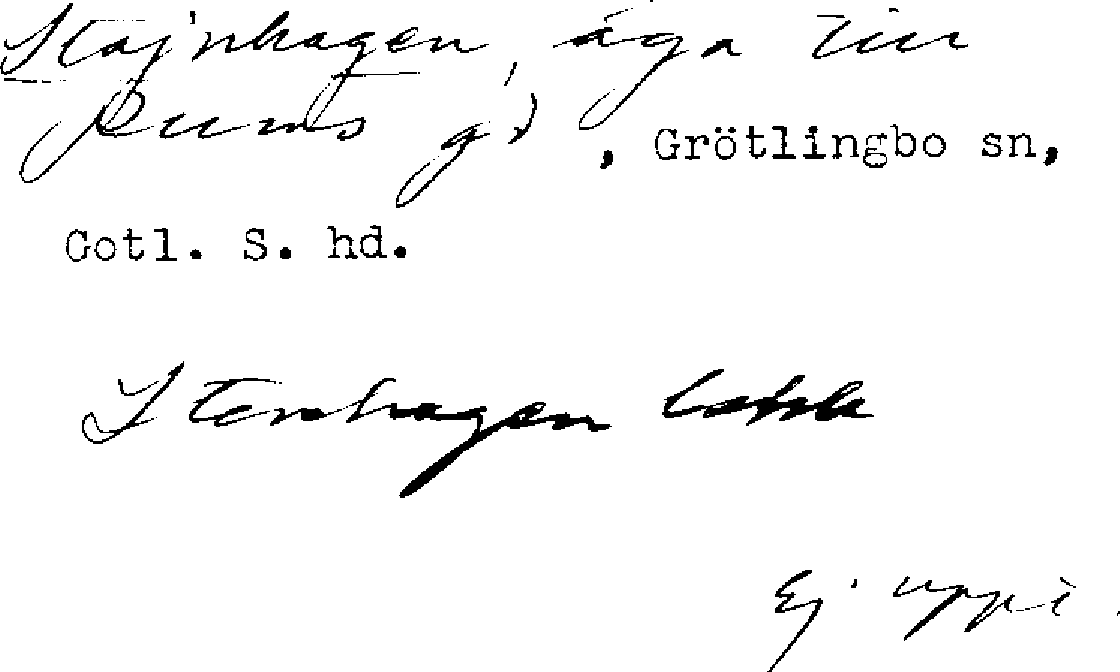 Stajnhagen, äga till
Rums gd, Grötlingbo sn,
Gotl. S. hd.
Stenhagen
Ej uppt.